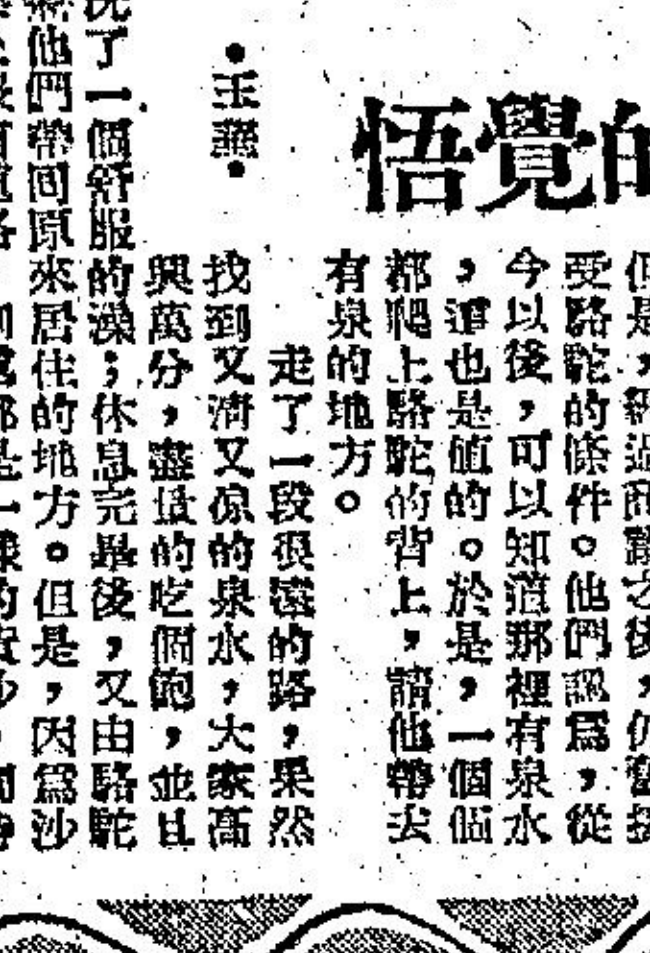 的覺悟
但是，經過商議之後，仍舊接
受駱駝的條件。他們認爲，從
今以後，可以知道那裡有泉水
，這也是值的。於是，一個個
都爬上駱駝的背上，請他帶去
有泉的地方。
走了一段很遠的路，果然
找到又清又凉的泉水，大家高
興萬分，盡量的吃個飽，並且
洗了一個舒服的澡；休息完畢後，又由駱駝
他們帶回原來居住的地方。但是，因爲沙